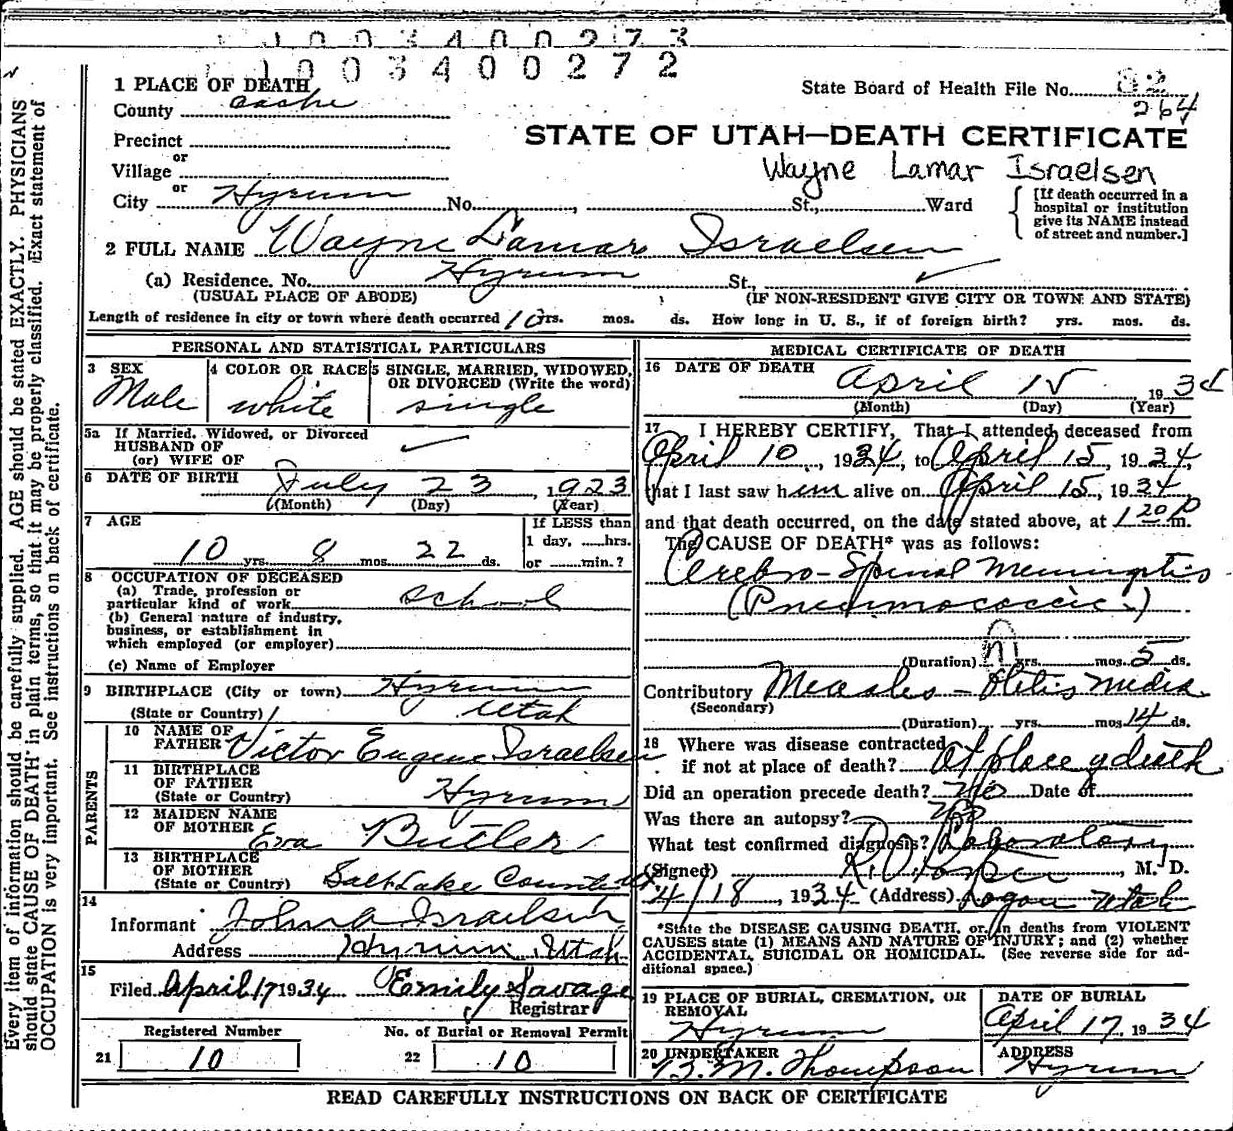 1003400273
1003400272
1 PLACE OF DEATH
State Board of Health File No. 82
County Cache
264
Precinct
STATE OF UTAH—DEATH CERTIFICATE
or
Village
Wayne Lamar Israelsen
or
City Hyrum No. , St., Ward
[If death occurred in a hospital or institution give its NAME instead of street and number.]
2 FULL NAME Wayne Lamar Israelsen
(a) Residence. No. Hyrum St.,
(USUAL PLACE OF ABODE) (IF NON-RESIDENT GIVE CITY OR TOWN AND STATE)
Length of residence in city or town where death occurred 10 yrs. mos. ds. How long in U. S., if of foreign birth? yrs. mos. ds.
PERSONAL AND STATISTICAL PARTICULARS
3 SEX 4 COLOR OR RACE 5 SINGLE, MARRIED, WIDOWED,
OR DIVORCED (Write the word)
Male white single
5a If Married, Widowed, or Divorced
HUSBAND OF
(or) WIFE OF
6 DATE OF BIRTH July 23, 1923
(Month) (Day) (Year)
7 AGE If LESS than
1 day, hrs.
10 yrs. 8 mos. 22 ds. or min.?
8 OCCUPATION OF DECEASED
(a) Trade, profession or
particular kind of work school
(b) General nature of industry,
business, or establishment in
which employed (or employer)
(c) Name of Employer
9 BIRTHPLACE (City or town) Hyrum
(State or Country) Utah
PARENTS
10 NAME OF
FATHER Victor Eugene Israelsen
11 BIRTHPLACE
OF FATHER
(State or Country) Hyrum
12 MAIDEN NAME
OF MOTHER Eva Butler
13 BIRTHPLACE
OF MOTHER
(State or Country) Salt Lake County
14
Informant John A Israelsen
Address Hyrum, Utah
15
Filed April 17 1934 Emily Savage
Registrar
Registered Number No. of Burial or Removal Permit
21 10 22 10
MEDICAL CERTIFICATE OF DEATH
16 DATE OF DEATH April 15 1934
(Month) (Day) (Year)
17 I HEREBY CERTIFY, That I attended deceased from
April 10, 1934, to April 15, 1934,
that I last saw him alive on April 15, 1934
and that death occurred, on the date stated above, at 1 20 P m.
The CAUSE OF DEATH* was as follows:
Cerebro-Spinal Meningitis
(Pneumococcic)
(Duration) yrs. mos. 5 ds.
Contributory Measles - Otitis Media
(Secondary)
(Duration) yrs. mos. 14 ds.
18 Where was disease contracted
if not at place of death? At place of death
Did an operation precede death? No Date of
Was there an autopsy? No
What test confirmed diagnosis? Laboratory
(Signed) , M. D.
4/18, 1934 (Address) Logan Utah
*State the DISEASE CAUSING DEATH, or, in deaths from VIOLENT
CAUSES state (1) MEANS AND NATURE OF INJURY; and (2) whether
ACCIDENTAL, SUICIDAL OR HOMICIDAL. (See reverse side for ad-
ditional space.)
19 PLACE OF BURIAL, CREMATION, OR DATE OF BURIAL
REMOVAL
Hyrum April 17, 1934
20 UNDERTAKER ADDRESS
M. Thompson Hyrum
READ CAREFULLY INSTRUCTIONS ON BACK OF CERTIFICATE
Every item of information should be carefully supplied. AGE should be stated EXACTLY. PHYSICIANS
should state CAUSE OF DEATH in plain terms, so that it may be properly classified. Exact statement of
OCCUPATION is very important. See instructions on back of certificate.